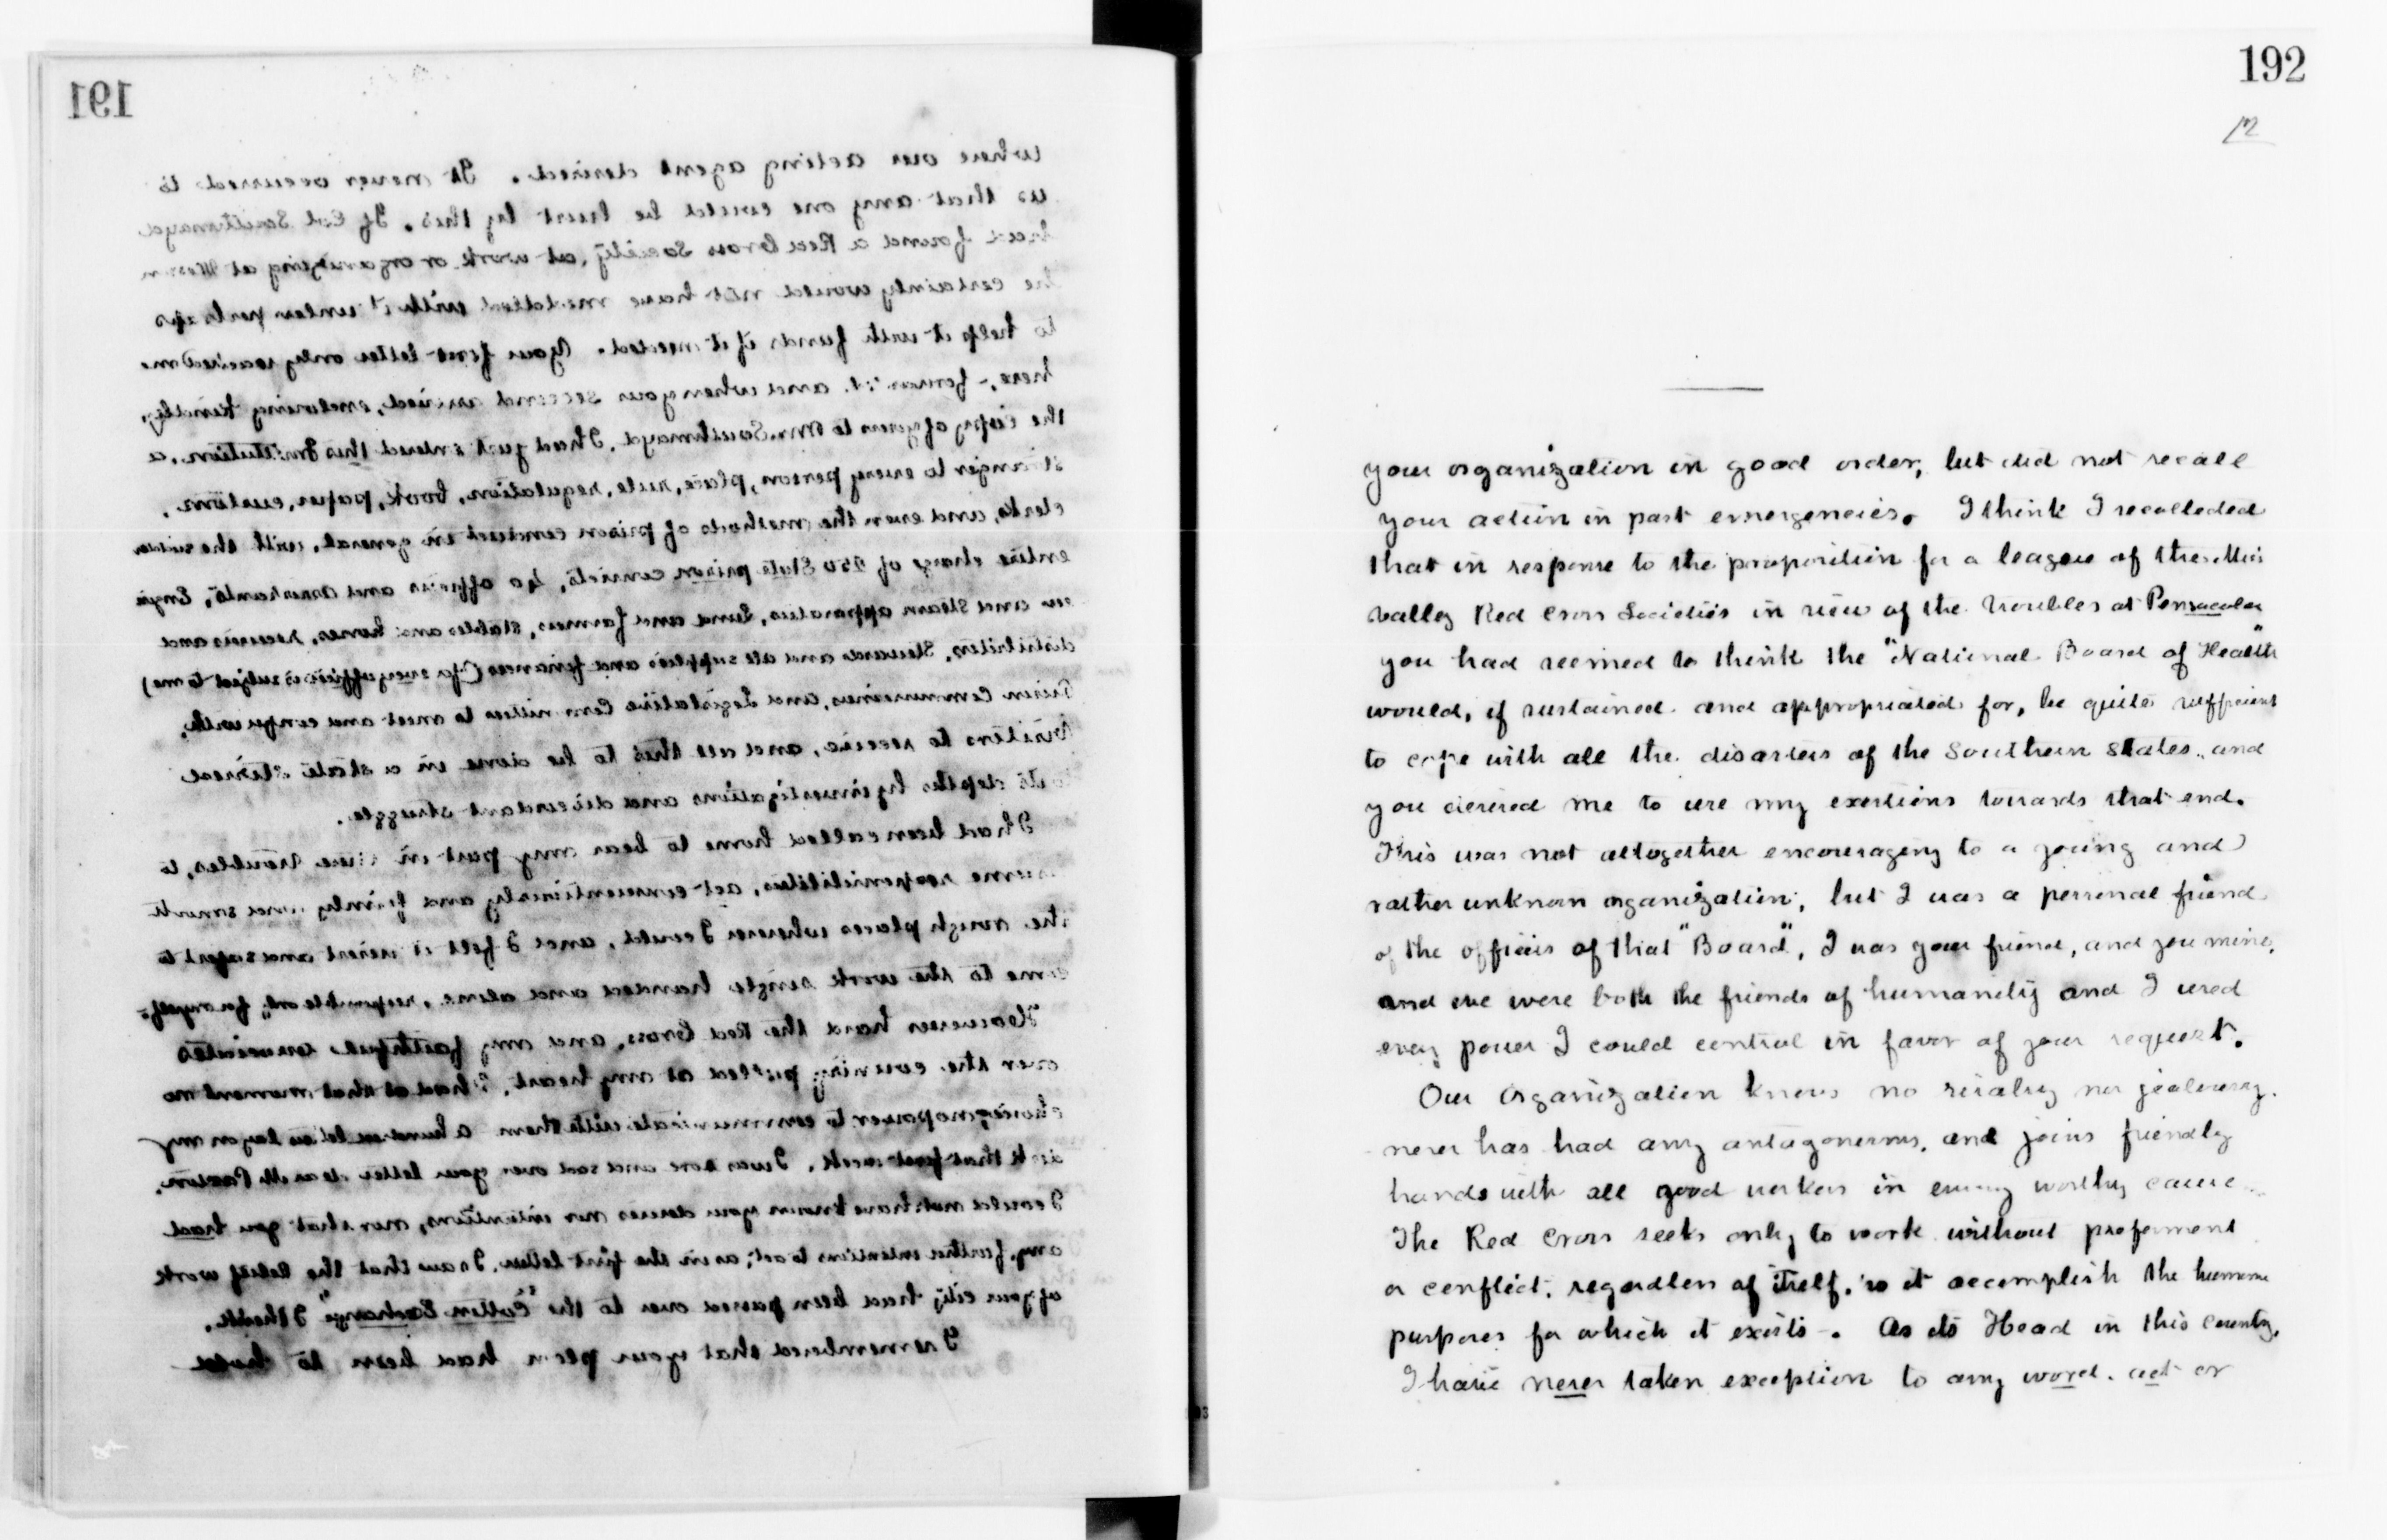 191
where our acting agent desired. It never occurred to
us that any one could be hurt by this. If Col Southmayd
had found a Red Cross Society, at work or organizing at
he certainly would not have meddled with it unless perhaps
to help it with funds if it needed. Your first letter only reached me
here, and when your second arrived, enclosing kindly,
the copy of yours to Mr. Southmayd, I had just entered this Institution, a
stranger to every person, place, rule, regulation, book, paper, custom,
clerks, and even the methods of prison conduct in general, with the sudden
entire charge of 250 State prison convicts, 40 officers and assistants,
and steam apparatus, land and farmers, stables and horses, receivers and
distributers, Steward and all supplies and finances (for every officer is subject to me)
Prison Commissioners, and Legislative Committees to meet and confer with,
Visitors to receive, and all this to be done in a state stirred
to its depths by investigations and discordant struggle.
I had been called home to bear my part in these troubles, to
assume responsibilities, act conscientiously and firmly and smooth
the rough places wherever I could, and I felt it wisest and safest to
come to the work single handed and alone, responsible only for myself.
However hard the Red Cross, and my faithful associates
over the country pulled at my heart, I had at that moment no
power to communicate with them a hundred letters lay on my
desk that first week. I was sore and sad over your letter dear Mr Paxton.
I could not have known your desires nor intentions, nor that you had
any further intentions to act; as in the first letter, I saw that the Relief work
of your city had been passed over to the "Cotton Exchange" I think.
I remembered that your plan had been to hold
192
12
your organization in good order, but did not recall
your action in past emergencies. I think I recollected
that in response to the proposition for a league of the
valley Red Cross Societies in view of the troubles at Pensacola
you had seemed to think the "National Board of Health"
would, if sustained and appropriated for, be quite sufficient
to cope with all the disasters of the Southern States, and
you desired me to use my exertions towards that end.
This was not altogether encouraging to a young and
rather unknown organization; but I was a personal friend
of the officers of that "Board", I was your friend, and you mine,
and we were both the friends of humanity and I used
every power I could control in favor of your request.
Our Organization knows no rivalry nor jealousy.
never has had any antagonisms, and joins friendly
hands with all good workers in every worthy cause.
The Red Cross seeks only to work without preferment
or conflict, regardless of itself, so it accomplish the humane
purposes for which it exists. As its Head in this country,
I have never taken exception to any word, act or